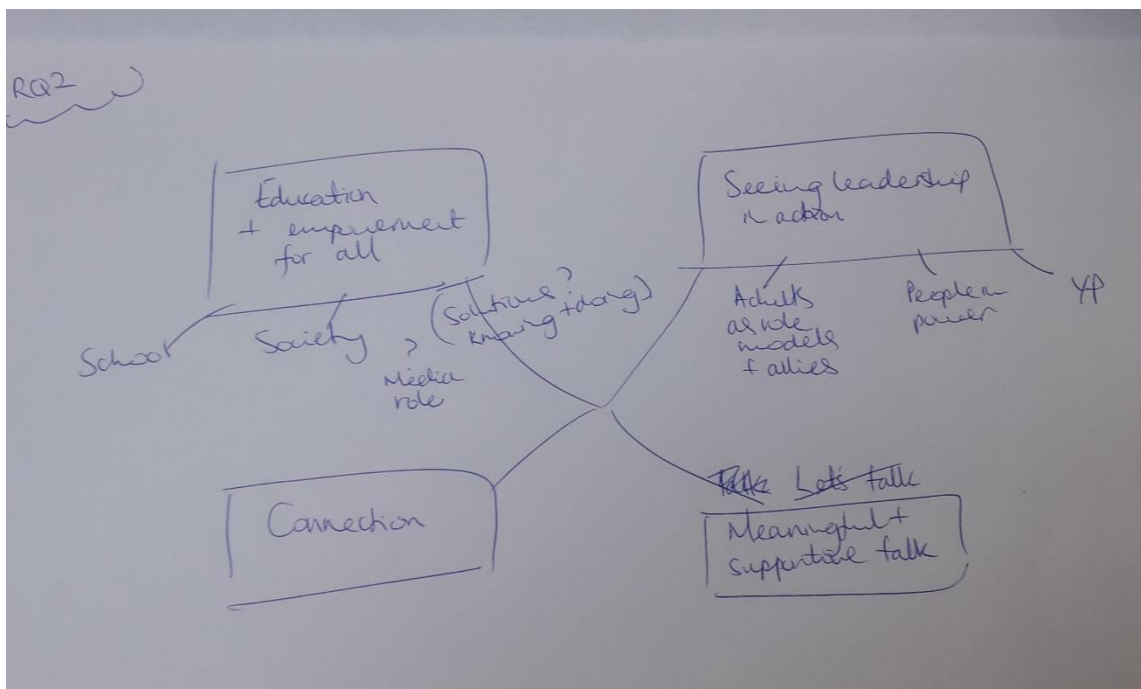 RQ2
Education
+ empowerment
for all
School
Society
?
Media
role
(Solutions?
knowing + doing)
Seeing leadership
in action
Adults
as role
models
+ allies
People in
power
YP
Connection
Let's talk
Meaningful +
supportive talk